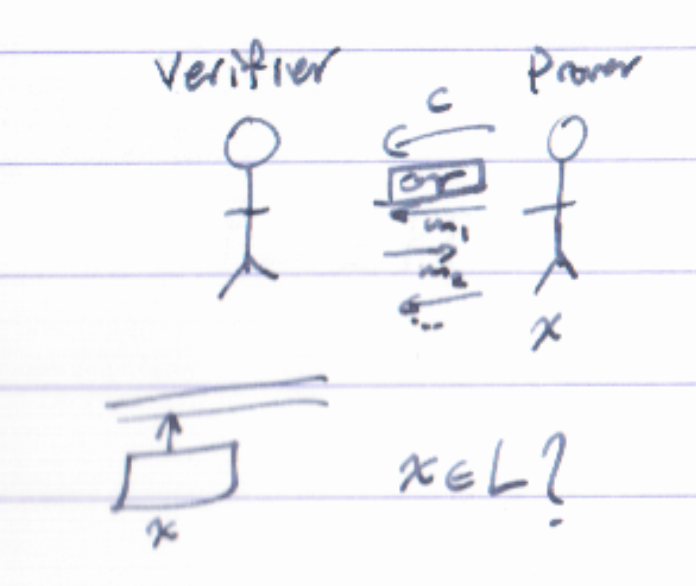 Verifier Prover
c
or
m₁
m₂
...
x
x
x ∈ L ?